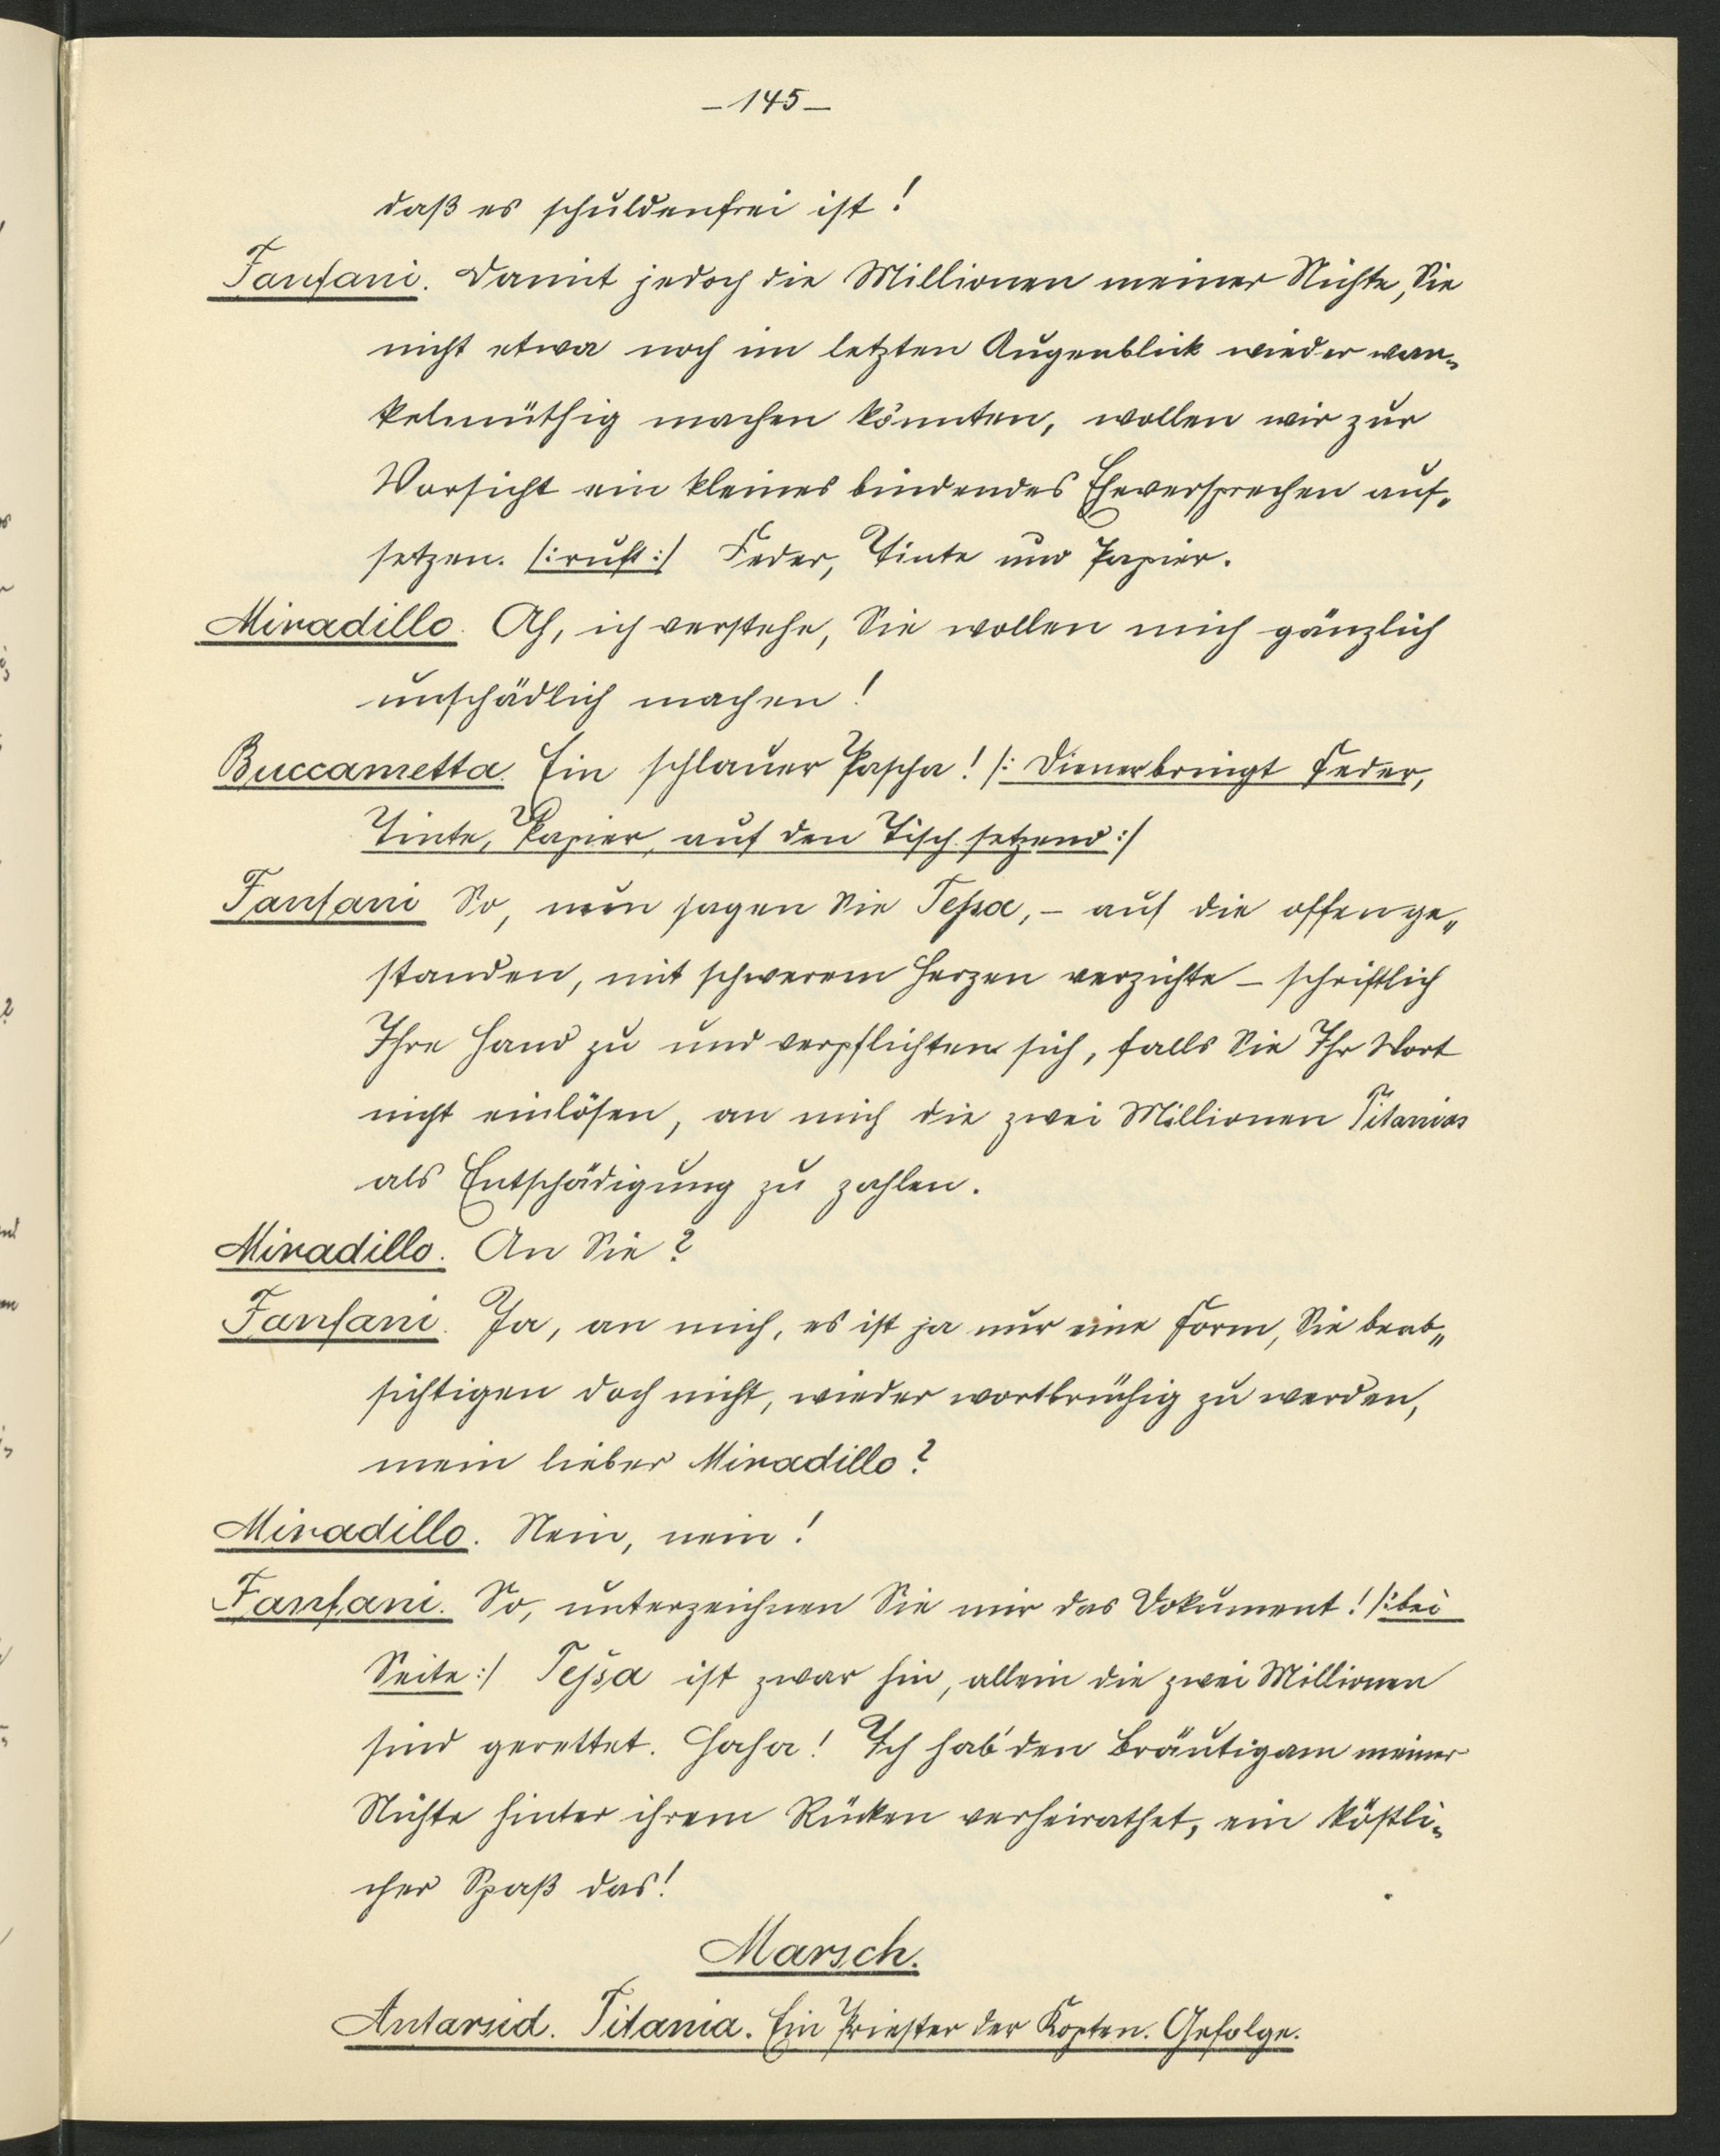 – 145 –
daß es schuldenfrei ist!
Fanfani. Damit jedoch die Millionen meiner Nichte, Sie
nicht etwa noch im letzten Augenblick wieder wan-
kelmüthig machen könnten, wollen wir zur
Vorsicht ein kleines bindendes Eheversprechen auf-
setzen. /:ruft:/ Feder, Tinte und Papier.
Miradillo. Ah, ich verstehe, Sie wollen mich gänzlich
unschädlich machen!
Buccametta. Ein schlauer Pascha! /: Diener bringt Feder,
Tinte, Papier, auf den Tisch setzend :/
Fanfani So, nun sagen Sie Tessa, – auf die offen ge„
standen, mit schwerem Herzen verzichte – schriftlich
Ihre Hand zu und verpflichten sich, falls Sie Ihr Wort
nicht einlösen, an mich die zwei Millionen Titanias
als Entschädigung zu zahlen.
Miradillo. An Sie?
Fanfani. Ja, an mich, es ist ja nur eine Form, Sie beab„
sichtigen doch nicht, wieder wortbrüchig zu werden,
mein lieber Miradillo?
Miradillo. Nein, nein!
Fanfani. So, unterzeichnen Sie mir das Dokument! /:bei
Seite:/ Tessa ist zwar hin, allein die zwei Millionen
sind gerettet. Haha! Ich hab' den Bräutigam meiner
Nichte hinter ihrem Rücken verheirathet, ein köstli-
cher Spaß das!
Marsch.
Antarsid. Titania. Ein Priester der Kopten. Gefolge.